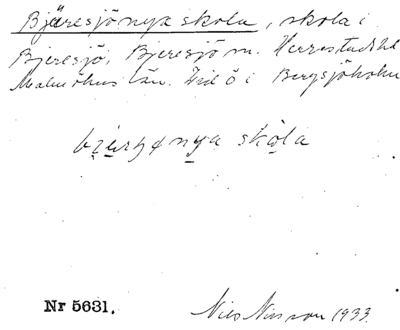 Bjäresjö nya skola, skola i
Bjeresjö, Bjeresjö sn. Herrestads hd
Malmöhus län. Vid ö i Bergsjöholm
nya skola
Nr 5631.
Nils Nilsson 1933.